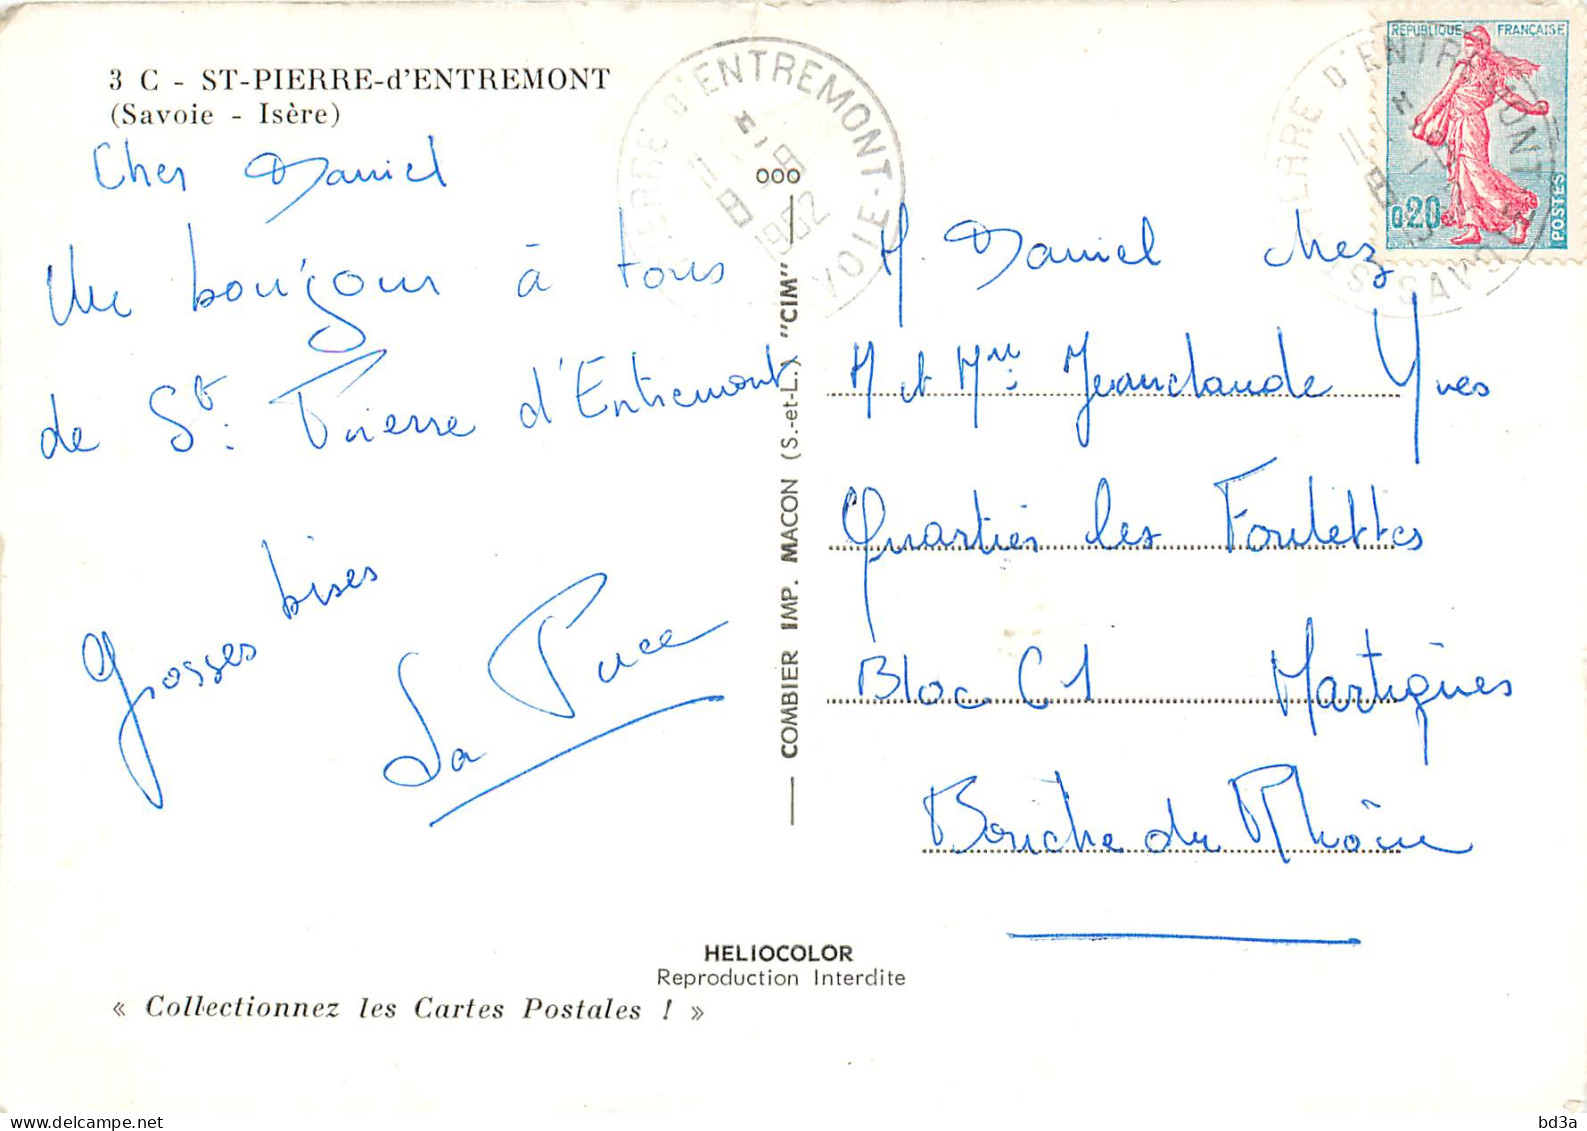 3 C - ST-PIERRE-d'ENTREMONT
(Savoie - Isère)
Cher Daniel
Un bonjour à tous
de St. Pierre d'Entremont
Grosses bises
La Puce
COMBIER IMP. MACON (S.-et-L.) "CIM"
PIERRE D'ENTREMONT
1962
SAVOIE
REPUBLIQUE FRANÇAISE
0,20
POSTES
PIERRE D'ENTREMONT
ST
SAVOIE
M. Daniel chez
M et Mme Jeanclaude Yves
Quartier les Foulettes
Bloc C1 Martigues
Bouche du Rhône
HELIOCOLOR
Reproduction Interdite
« Collectionnez les Cartes Postales ! »
bd3a